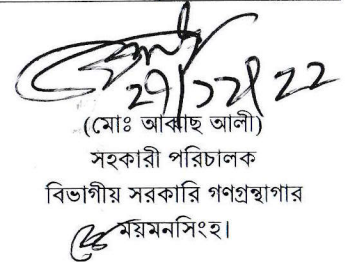 ২৭/১২/২২
(মোঃ আব্বাছ আলী)
সহকারী পরিচালক
বিভাগীয় সরকারি গণগ্রন্থাগার
ময়মনসিংহ।